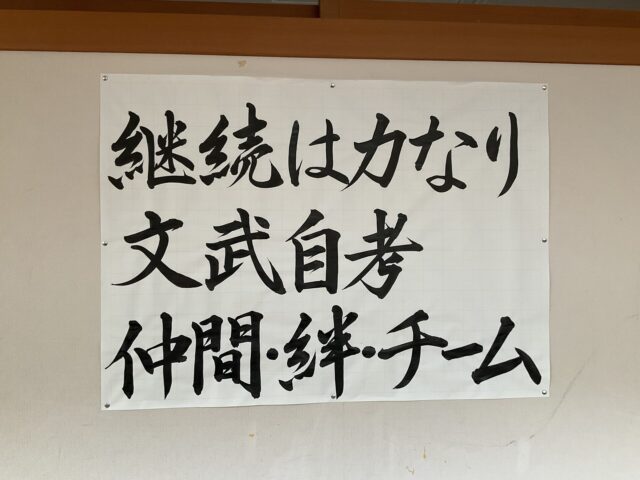 継続は力なり
文武自考
仲間・絆・チーム